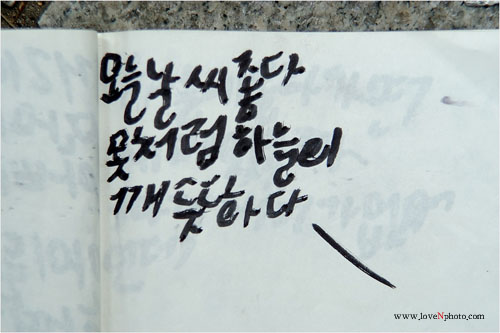 오늘 날씨 좋다
못처럼 하늘의
깨뜻하다
www.loveNphoto.com